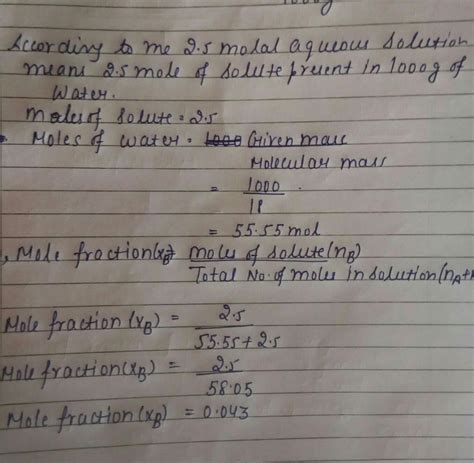 1000g
According to me 2.5 molal aqueous solution
means 2.5 mole of solute present in 1000g of
Water.
Moles of solute = 2.5
Moles of water = 1000 Given mass
Molecular mass
= 1000
18
= 55.55 mol
Mole fraction(xB) = moles of solute(nB)
Total No. of moles in solution(nA+
Mole fraction (xB) = 2.5
55.55 + 2.5
Mole fraction(xB) = 2.5
58.05
Mole fraction (xB) = 0.043